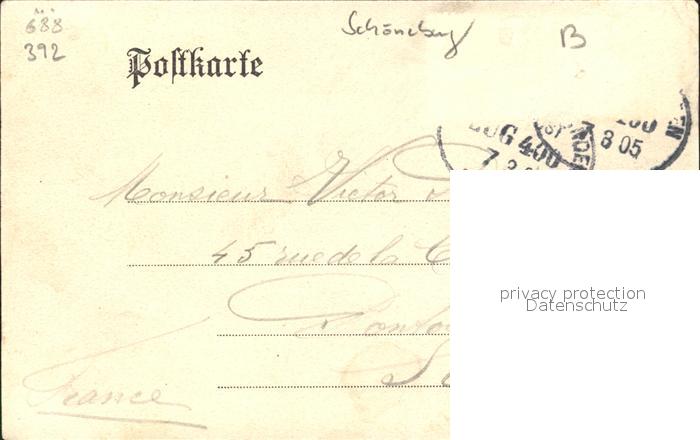 688
392
Schöneberg
B
Postkarte
ZUG 400
7
8 05
Monsieur Victor
45 rue de la
France
privacy protection
Datenschutz